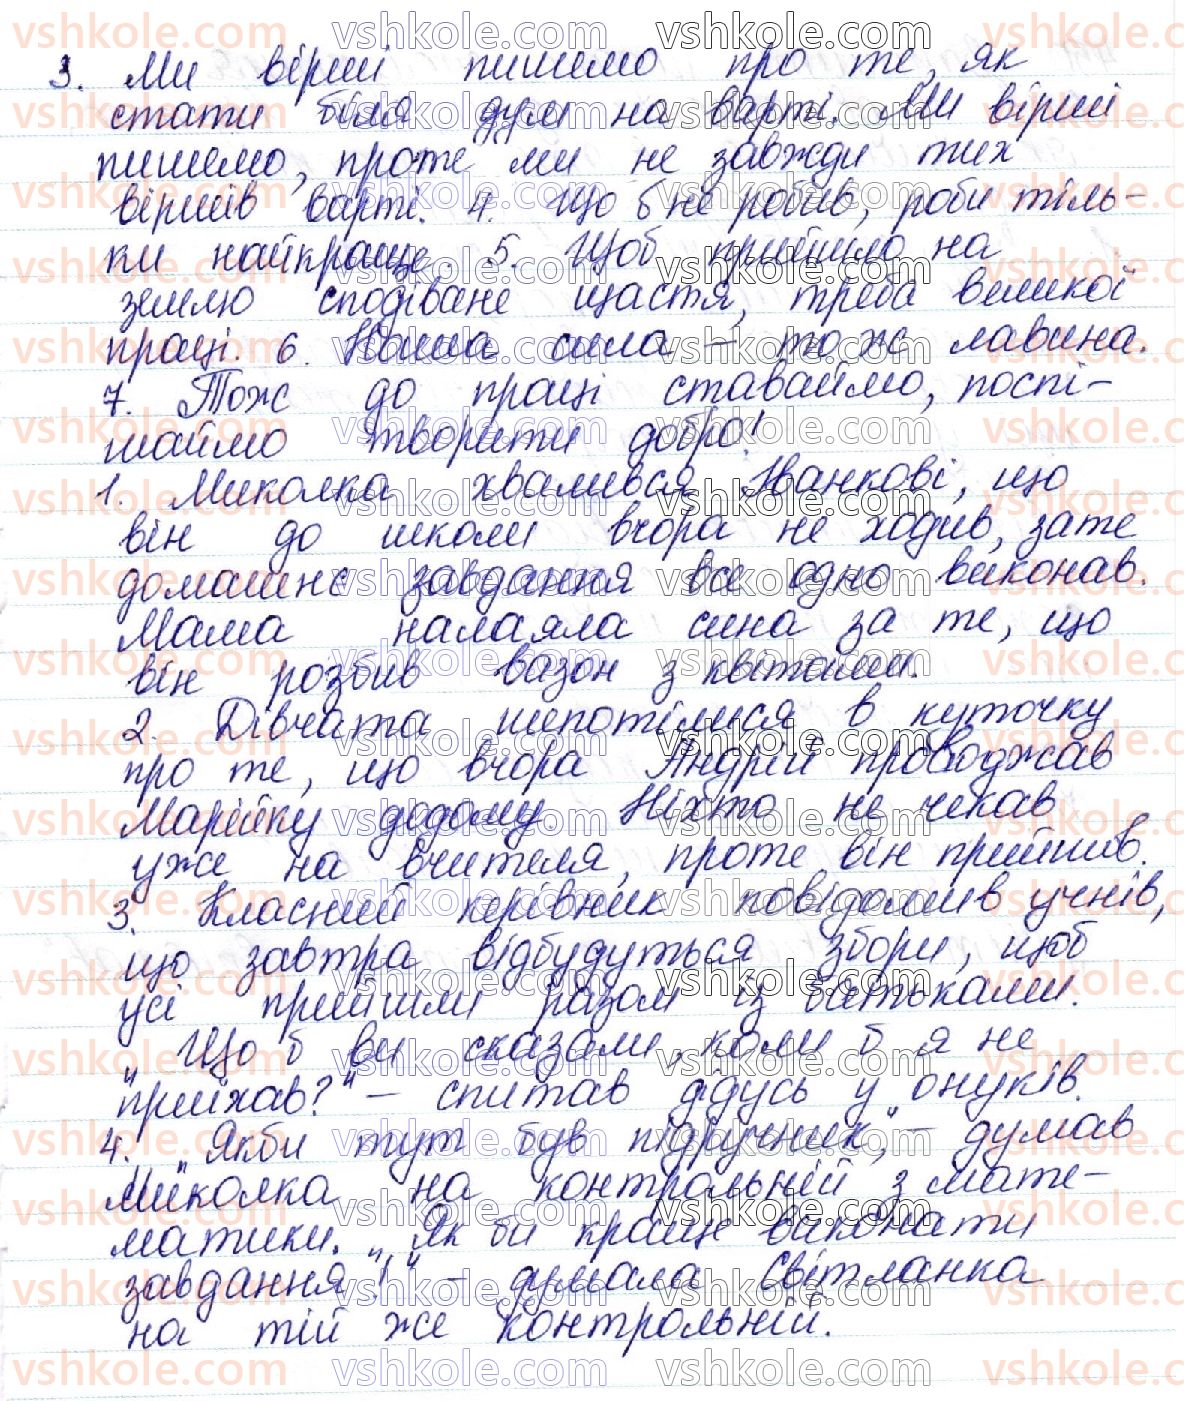 3. Ми вірші пишемо про те, як
стати біля дум на варті. Ми вірші
пишемо, проте ми не завжди тих
віршів варті. 4. Що б не робив, роби тіль-
ки найкраще. 5. Щоб прийшло на
землю сподіване щастя, треба великої
праці. 6. Наша сила – то ж лавина.
7. Тож до праці ставаймо, поспі-
шаймо творити добро!
1. Миколка хвалився Іванкові, що
він до школи вчора не ходив, зате
домашнє завдання все одно виконав.
Мама налаяла сина за те, що
він розбив вазон з квітами.
2. Дівчата шепотілися в куточку
про те, що вчора Андрій проводжав
Марійку додому. Ніхто не чекав
уже на вчителя, проте він прийшов.
3. Класний керівник повідомив учнів,
що завтра відбудуться збори, щоб
усі прийшли разом із батьками.
„Що б ви сказали, коли б я не
приїхав?" – спитав дідусь у онуків.
4. „Якби тут був підручник", – думав
Миколка на контрольній з мате-
матики. „Як би краще виконати
завдання!" – думала Світланка
на тій же контрольній.